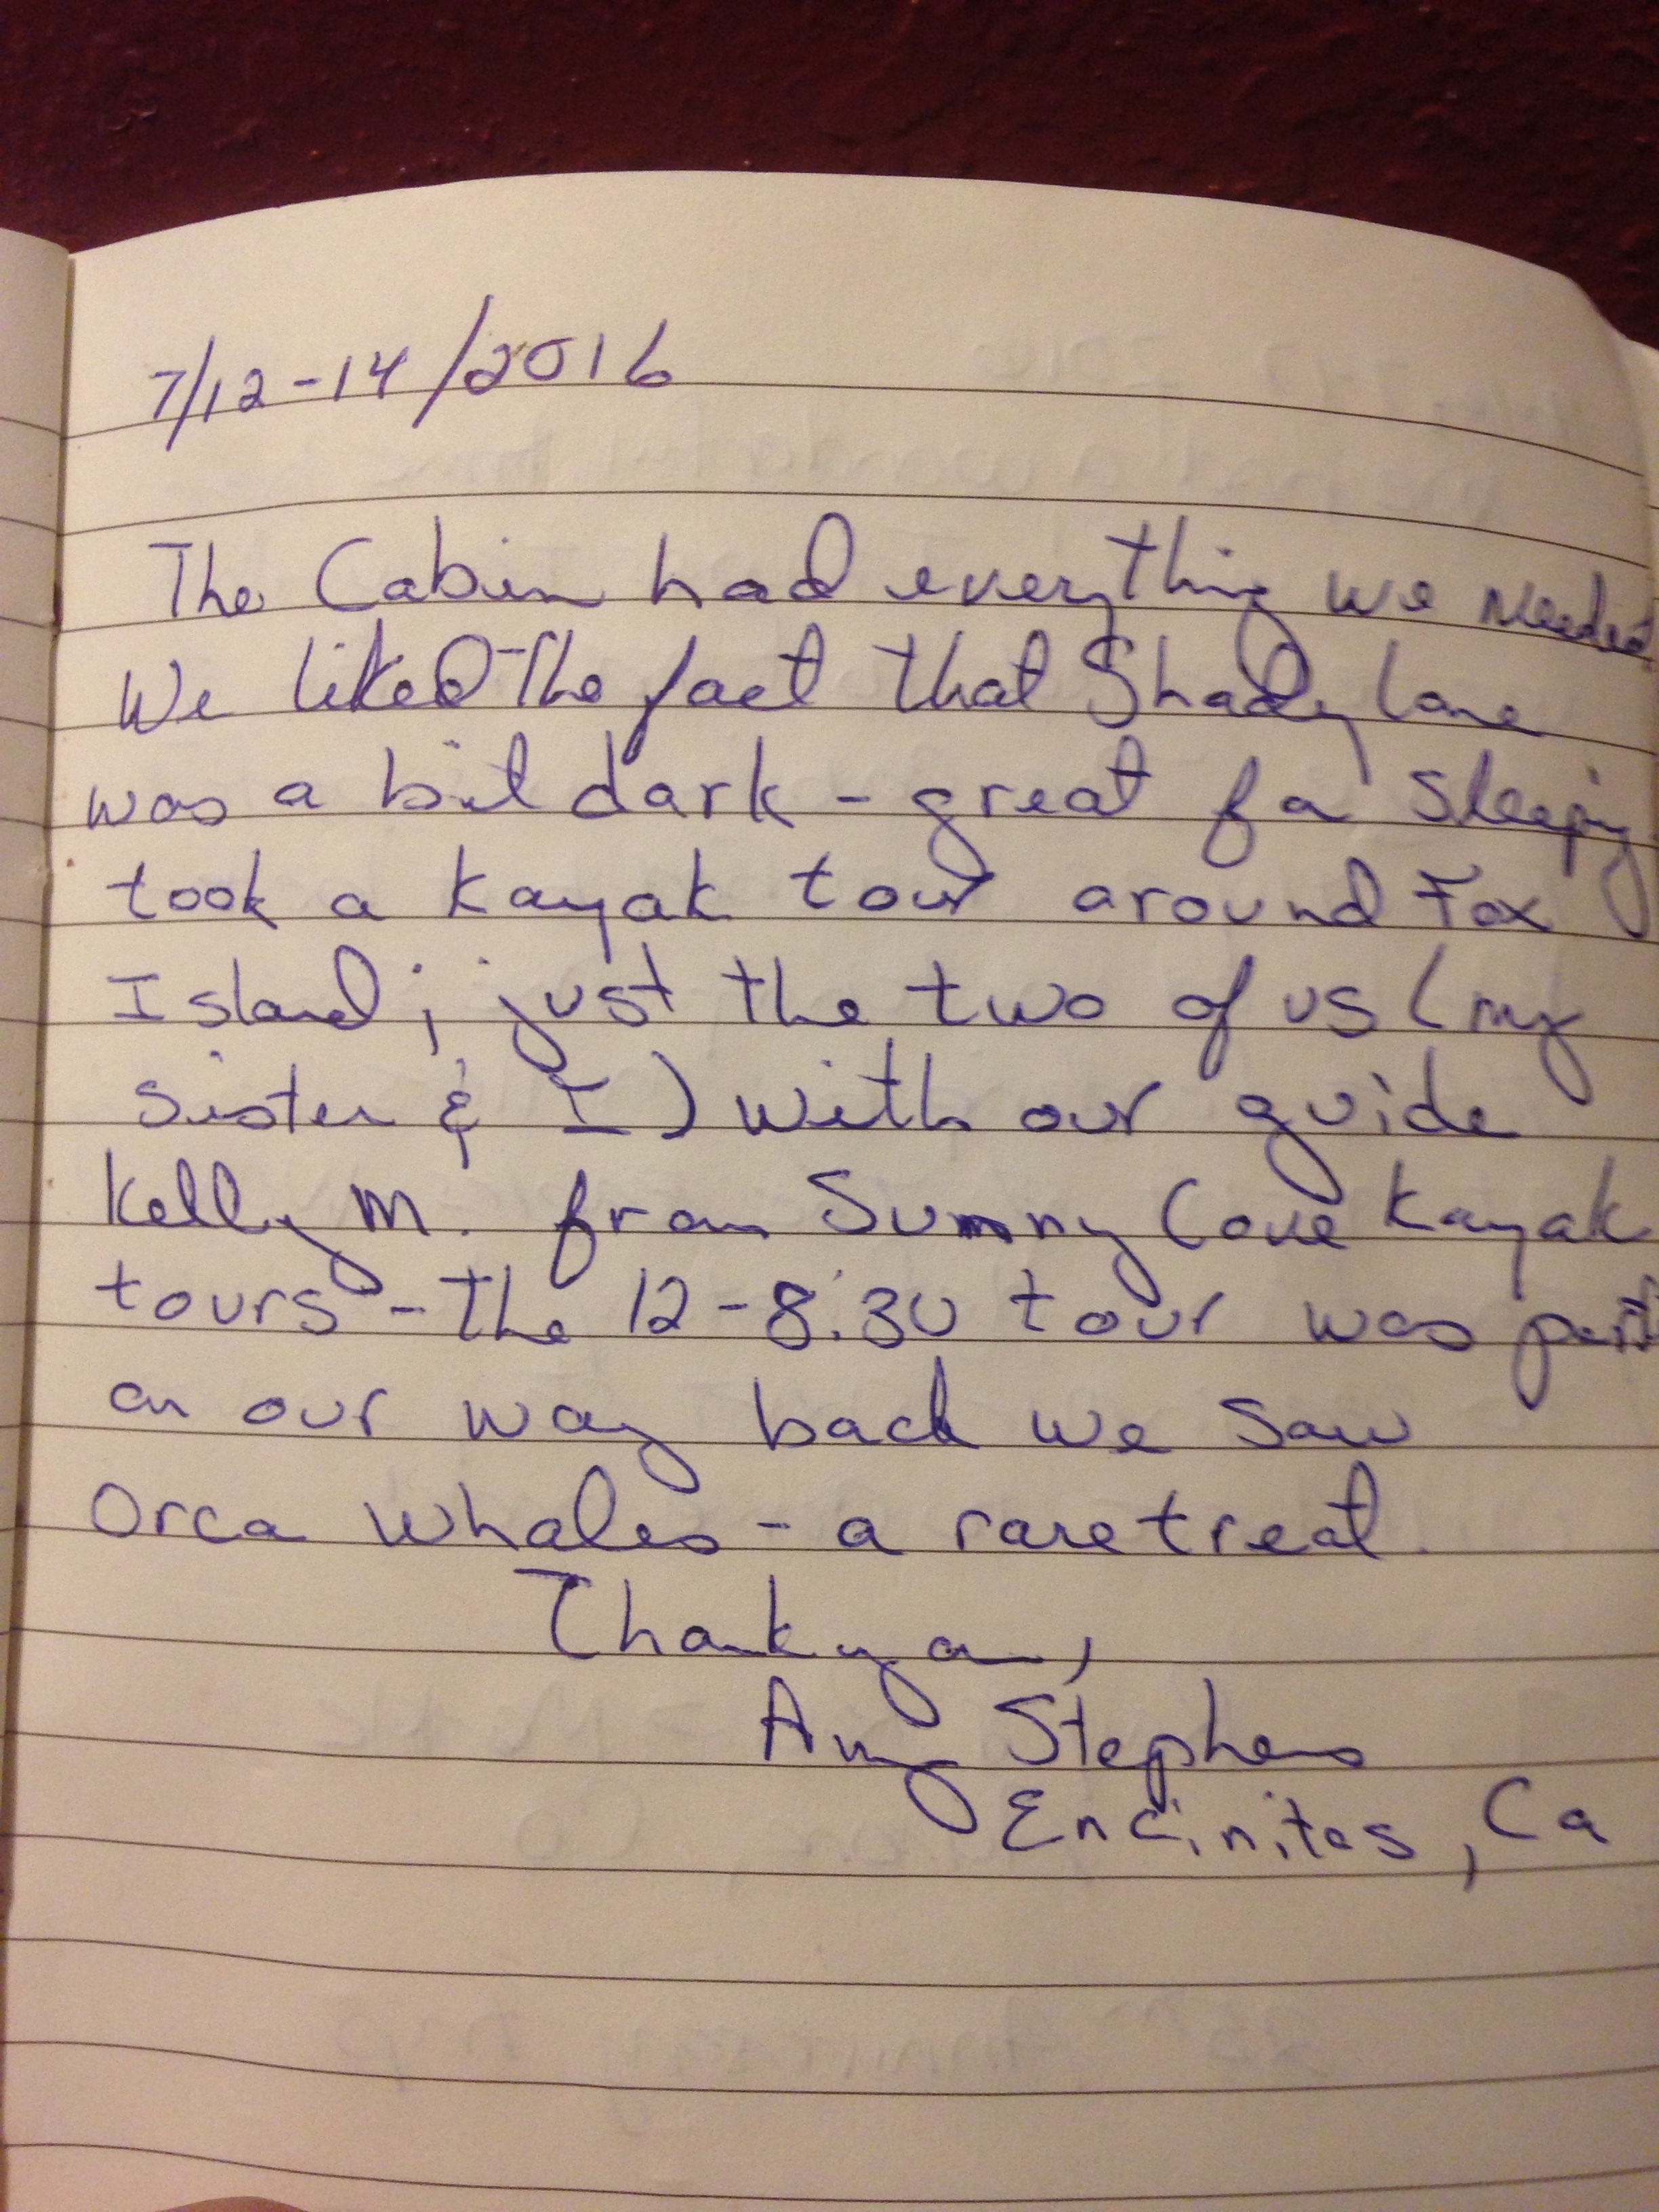 7/12-14/2016
The Cabin had everything we needed
We liked The fact that Shady Lane
was a bit dark - great for sleeping
took a kayak tour around Fox
Island; just the two of us (my
sister & I) with our guide
Kelly M. from Sunny Cove Kayak
tours - The 12-8:30 tour was
on our way back we saw
Orca Whales - a rare treat.
Thank you,
Amy Stephens
Encinitas, Ca